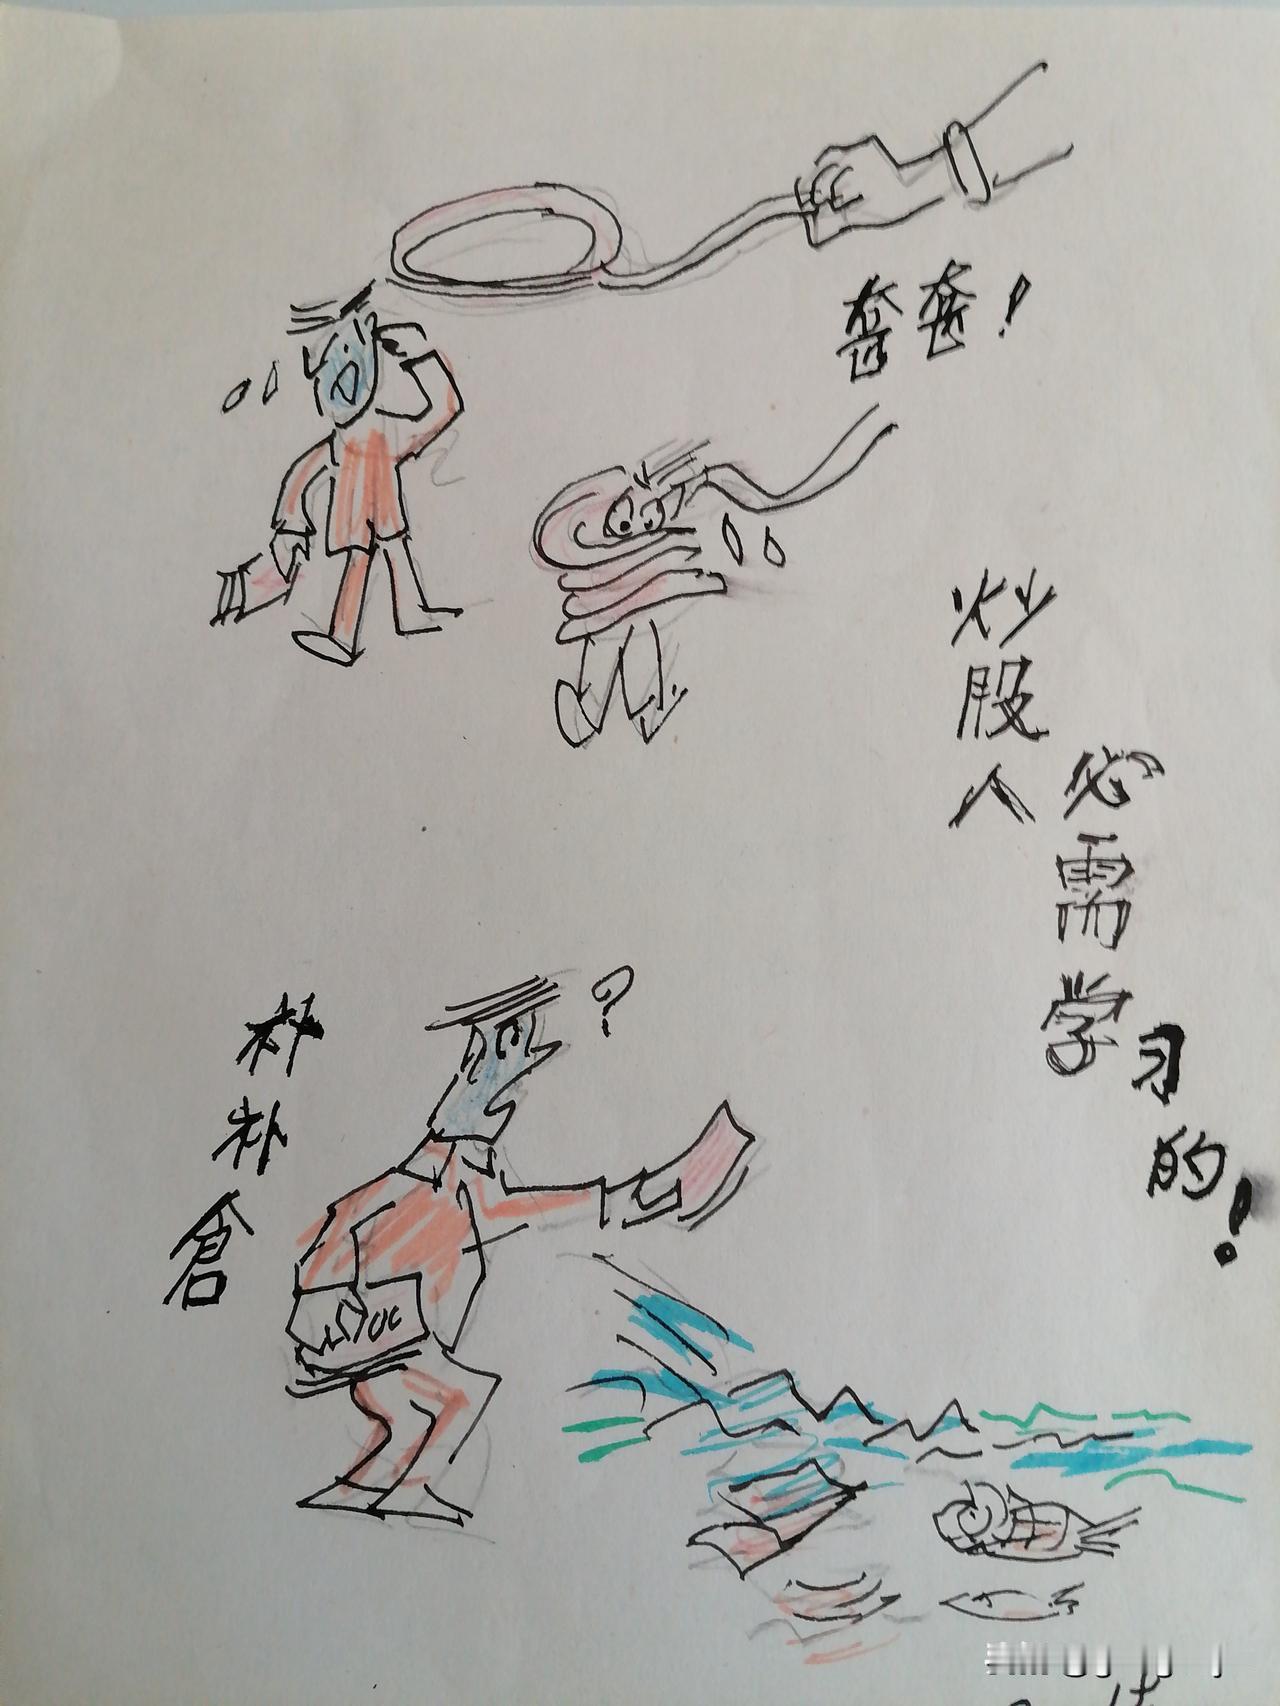 套套！
炒股人
必需学习的！
?
补补仓